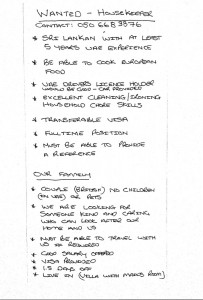 WANTED - HOUSEKEEPER
CONTACT: 050 6683576
* SRI LANKAN WITH AT LEAST
5 YEARS UAE EXPERIENCE
* BE ABLE TO COOK EUROPEAN
FOOD
* UAE DRIVERS LICENCE HOLDER
WOULD BE GOOD - CAR PROVIDED
* EXCELLENT CLEANING/IRONING
HOUSEHOLD CHORE SKILLS
* TRANSFERABLE VISA
* FULLTIME POSITION
* MUST BE ABLE TO PROVIDE
A REFERENCE
OUR FAMILY
* COUPLE (BRITISH) NO CHILDREN
(IN UAE) OR PETS
* WE ARE LOOKING FOR
SOMEONE KIND AND CARING
WHO CAN LOOK AFTER OUR
HOME AND US
* MUST BE ABLE TO TRAVEL WITH
US IF REQUIRED
* GOOD SALARY OFFERED
* VISA PROVIDED
* 1.5 DAYS OFF
* LIVE IN (VILLA WITH MAIDS ROOM)